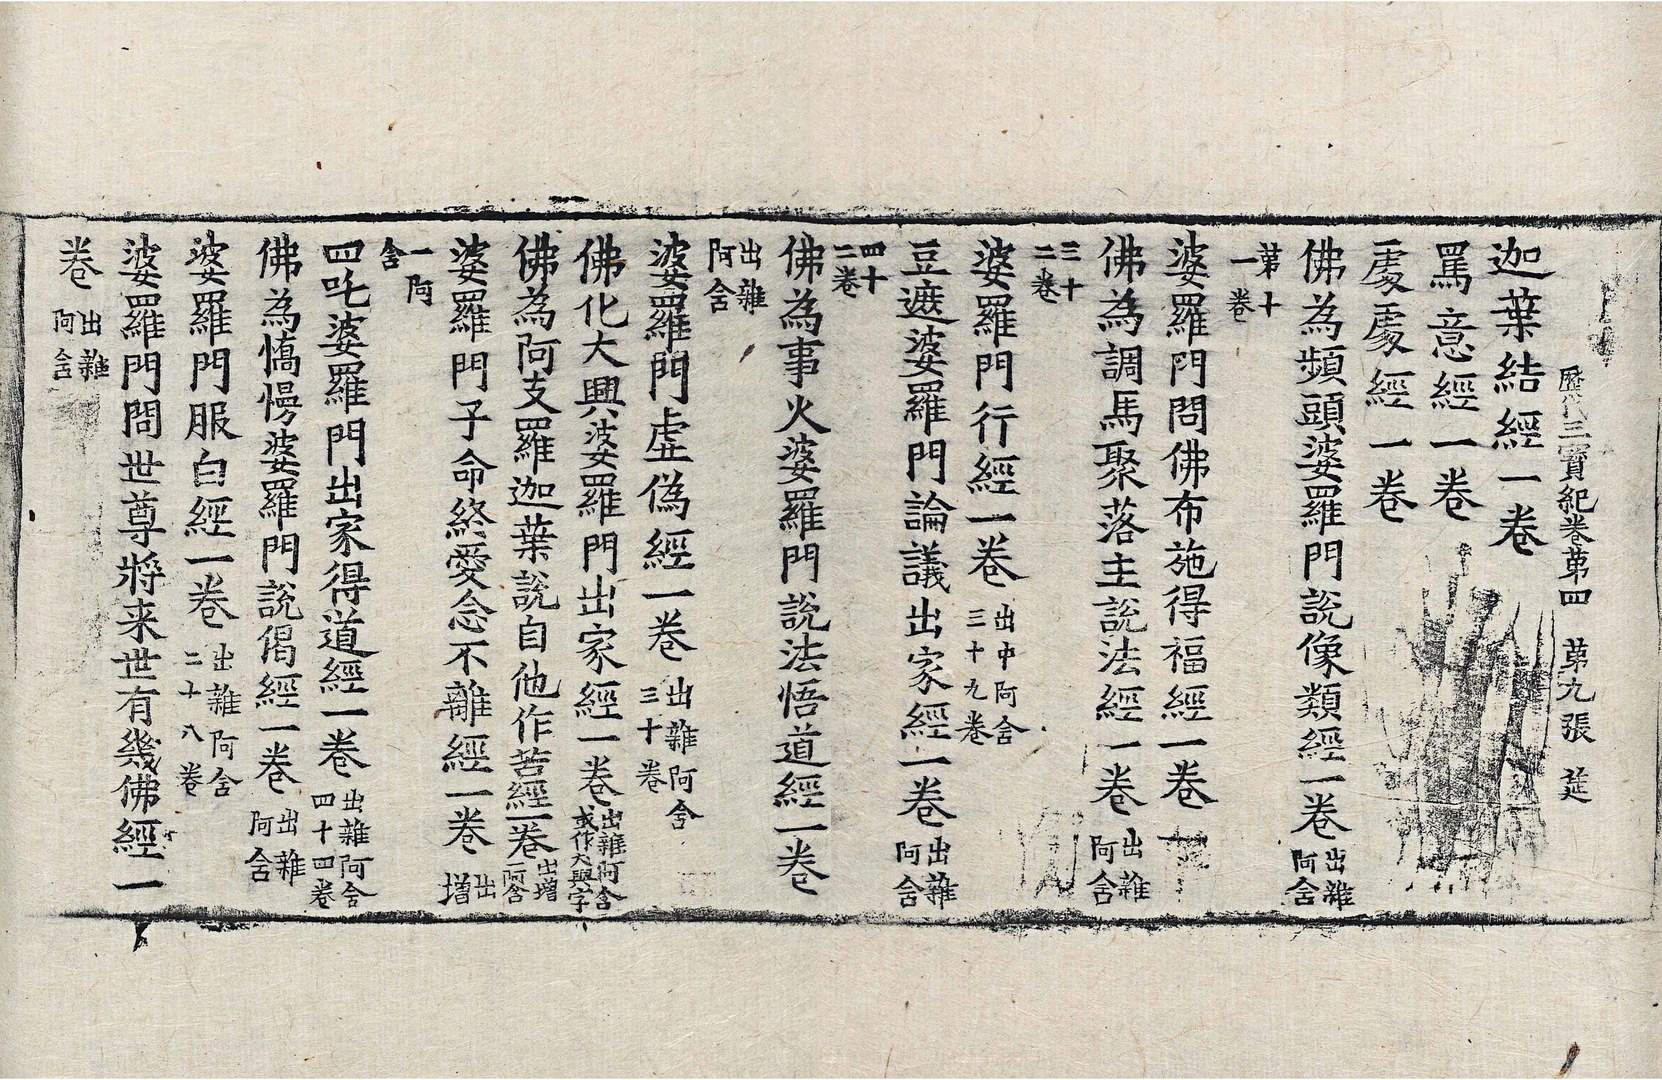 歷代三寶紀卷苐四 苐九張 莚
迦葉結經一卷
罵意經一卷
處處經一卷
佛為頻頭婆羅門說像類經一卷 出雜阿含
苐十一卷
婆羅門問佛布施得福經一卷
佛為調馬聚落主說法經一卷 出雜阿含
三十二卷
婆羅門行經一卷 出中阿含三十九卷
豆遮婆羅門論議出家經一卷 出雜阿含
四十二卷
佛為事火婆羅門說法悟道經一卷
出雜阿含
婆羅門虛偽經一卷 出雜阿含三十卷
佛化大興婆羅門出家經一卷 出雜阿含或作大興字
佛為阿支羅迦葉說自他作苦經一卷 出增阿含
婆羅門子命終愛念不離經一卷 出增
一阿含
四吒婆羅門出家得道經一卷 出雜阿含四十四卷
佛為憍慢婆羅門說偈經一卷 出雜阿含
婆羅門服白經一卷 出雜阿含二十八卷
婆羅門問世尊將来世有幾佛經一
卷 出雜阿含